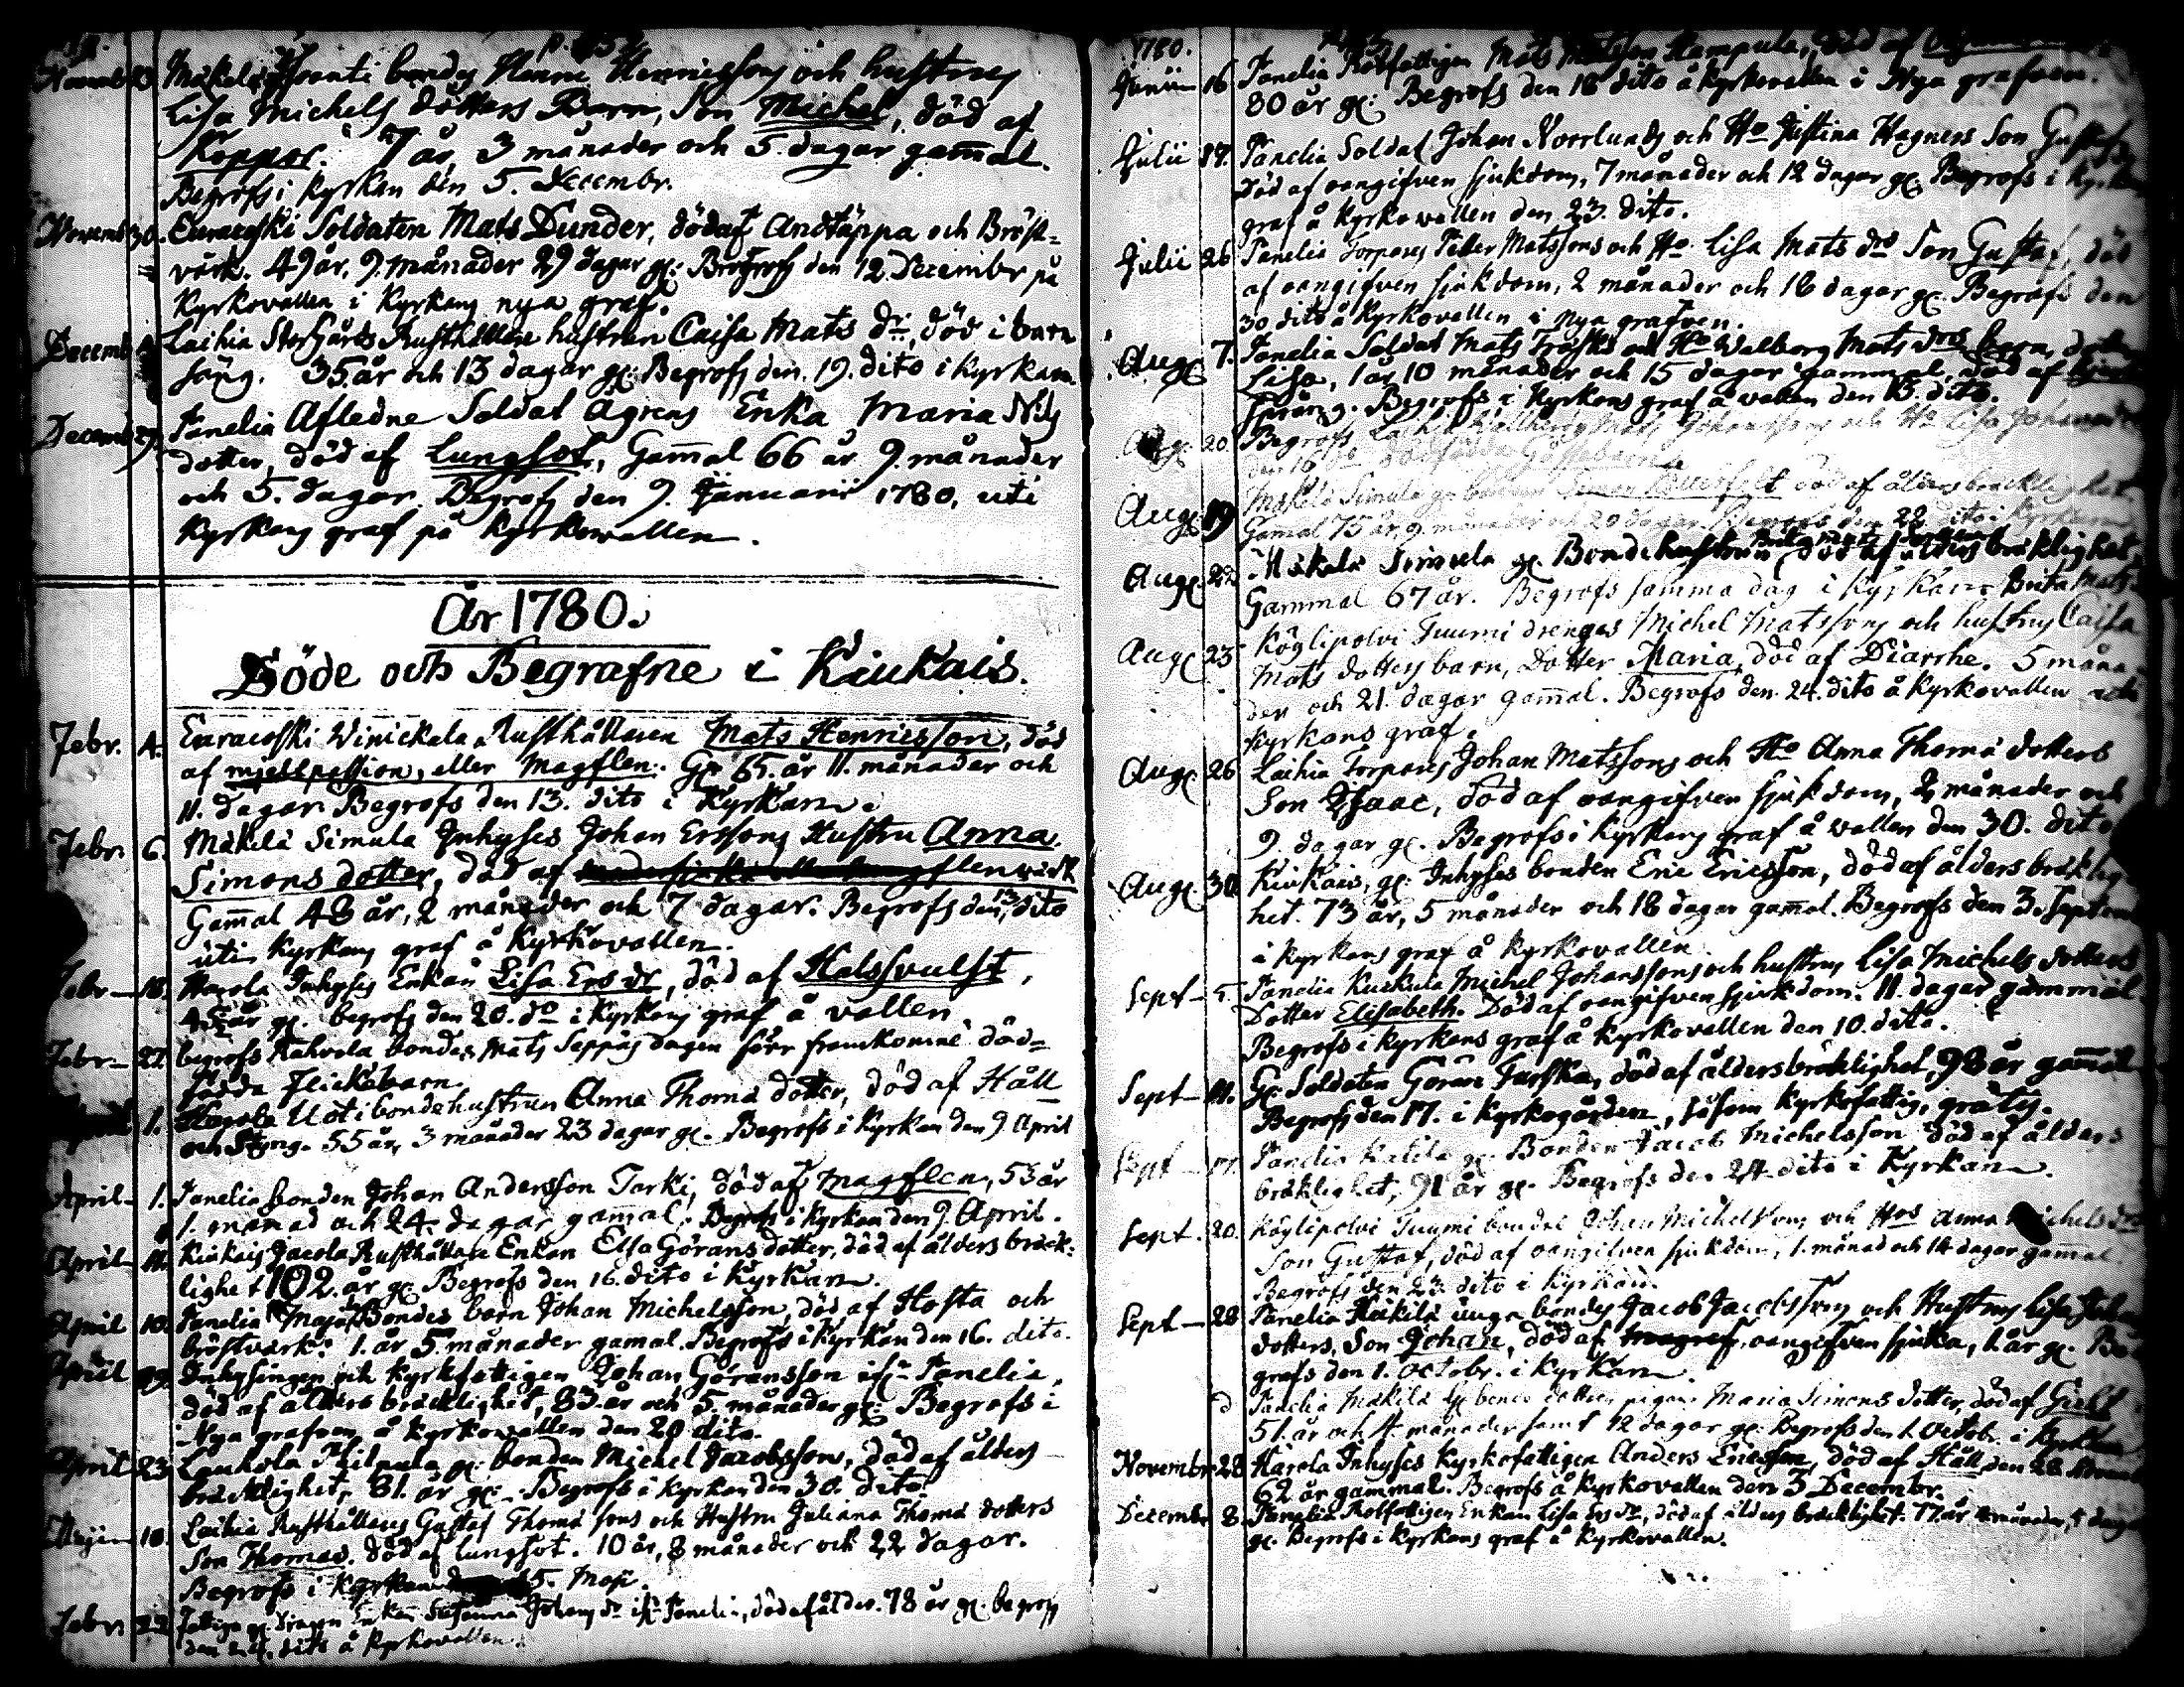 Novemb 23. Mäkelä Isoanti bonds Henric Henricssons och hustrus
Lisa Michels dotters Barn, Son Michel, död af
Koppor. 7 år, 3 månader och 5. dagar gam̄al.
Begrofs i Kyrkan den 5. Decembr.
Novemb 30. Euracoski Soldaten Mats Dunder, död af Andtäppa och Bröst=
värk. 49 år, 9. månader 29 dagar gl: Begrofs den 12 Decembr på
Kyrkovallen i Kyrkans nya graf.
Decemb Laihia Storgårds Rusthållare hustrun Caisa Mats dr, död i barn
säng. 35 år och 13 dagar gl: Begrofs den. 19. dito i Kyrkan.
Decemb 29. Panelia Afledne Soldat Agrens Enka Maria Nils
dotter, död af Lungsot, Gam̄al 66 år 9. månader
och 5. dagar. Begrofs den 9. Januarii 1780, uti
Kyrkans graf på Kyrkowallen.
År 1780.
Döde och Begrafne i Kiukais.
Febr. 4. Euracoski Winickala Rusthållaren Mats Henricsson, död
af mjeltpassion, eller Magflen. Gl: 65. år 11. månader och
11. dagar. Begrofs den 13. dito i Kyrkan.
Febr. 6. Mäkilä Simula Inhyses Johan Erssons Hustru Anna
Simons dotter, död af
Gam̄al 48 år, 2 månader och 7 dagar. Begrofs den 13. dito
uti Kyrkans graf å Kyrkovallen.
Febr 18. Harola Inhyses Enkan Lisa Ers dr, död af Halssvulst,
45 år gl. begrofs den 20. do i Kyrkans graf å vallen
Febr 27. begrofs Rahvola bondes Mats Seppäs dagen förr framkomne död=
födda flickobarn.
April 1. Harola Uoti bondehustrun Anna Thomä dotter, död af Håll
och Styng. 55 år, 3 månader 23 dagar gl. Begrofs i Kyrkan den 9 April
April 1. Panelia bonden Johan Andersson Tarki, död af magflen, 53 år
1. månad och 24. dagar gam̄al. Begrofs i Kyrkan den 9. April.
April 11. Kiukais Jacola Rusthållare Enkan Elsa Görans dotter, död af ålders bräck:
lighet 102. år gl. Begrofs den 16. dito i Kyrkan.
April 10. Panelia Maja Bondes barn Johan Michelsson, död af Hosta och
bröstvärk: 1. år 5. månader gamal. Begrofs i Kyrkan den 16. dito.
April 19. Inhysingen och Kyrkfattigen Johan Göransson ifr. Panelia,
död af ålders bräcklighet, 83. år och 5. månader gl. Begrofs i
Nya grafven å Kyrkowallen den 20 dito.
April 23. Laukola Philpula gl: bonden Michel Jacobsson, död af ålders
bräcklighet, 81. år gl. Begrofs i Kyrkan den 30. dito.
Maji 10. Laihia Rusthållares Gustaf Thomä sons och Hustru Juliana Thomä dotters
Son Thomas. död af lungsot. 10 år, 8 månader och 22 dagar.
Begrofs i Kyrkan 15. Maji.
Febr. 22. Fattiga gl. Dragon Enkan Susanna Johans dr ifr. Panelia, död af ålder. 78 år gl. begrofs
den dito å Kyrkovallen.
1780.
Junii 16. Panelia Rotfattigen Mats Matsson Kampula, död af
80 år gl: Begrofs den 18 dito å Kyrkovallen i Nya grafven.
Julii 17. Panelia Soldat Johan Norrlunds och Ho Justina Hagners Son Gustaf
död af oangifven sjukdom, 7 månader och 12 dagar gl. Begrofs i Kyrkans
graf å Kyrkowallen den 23. dito.
Julii 26 Panelia Torpares Petter Matssons och Ho Lisa Mats drs Son Gustaf, död
af oangifven sjukdom, 2 månader och 18 dagar gl. Begrofs den
30. dito å Kyrkovallen i Nya grafven.
Aug: 7. Panelia Soldat Mats Träsks och Ho Walborg Mats drs barn, dotter
Lisa, 1 år 10 månader och 15 dagar gammal, död af
språng. Begrofs i Kyrkans graf å vallen den 13. dito.
Aug: 20. Begrofs Mats Johanssons och Ho Lisa Johans
den 16 dödfödda Gossebarn.
Aug: 19 Mäkilä Simula gl. bonden Simon död af åldersbräcklighet.
Gamal 75 år, 9 månader och 20 dagar. Begrofs den 22 dito i Kyrkan
Aug: 22 Mäkilä Simula gl. Bondehustrun Brita Mats död af ålders bräklighet,
Gammal 67 år. Begrofs samma dag i Kyrkan Brita Mats
Aug: 23 Köylipolvi Tuumi drenges Michel Matssons och hustrus Caisa
Mats dotters barn, Dotter Maria, död af Diarrhe. 5 måna
der och 21. dagar gam̄al. Begrofs den 24. dito å Kyrkovallen uti
Kyrkans graf.
Aug: 26 Laihia Torpares Johan Matssons och Ho Anna Thomä dotters
Son Isaac, död af oangifven sjukdom, 2 månader och
9. dagar gl. Begrofs i Kyrkans graf å vallen den 30. dito
Aug: 30 Kiukais, gl: Inhyses bonden Eric Ericsson, död af ålders bräcklig
het. 73 år, 5 månader och 18 dagar gam̄al. Begrofs den 3. Septem
i Kyrkans graf å Kyrkovallen
Sept 5. Panelia Kuckula Michel Johanssons och hustrus Lisa Michels dotters
Dotter Elisabeth. Död af oangifven sjukdom. 11. dagar gammal
Begrofs i Kyrkans graf å Kyrkovallen den 10. dito.
Sept 11. Gl. Soldaten Göran Furska, död af åldersbräcklighet, 98 år gam̄al
Begrofs den 17. i Kyrkogården, såsom Kyrkofattig, gratis.
Sept 17. Panelia Kaltila gl. Bonden Jacob Michelsson, död af ålders
bräklighet, 91 år gl. Begrofs den 24 dito i Kyrkan.
Sept. 20. Köylipolvi Tuumi bondes Johan Michelssons och Hos Anna Michels drs
Son Gustaf, död af oangifven sjukdom, 1. månad och 14 dagar gam̄al.
Begrofs den 23 dito i Kyrkan.
Sept 28 Panelia Heikilä unga bondes Jacob Jacobssons och Hustrus Lisa Johans
dotters, Son Johan, död af oangifven sjuka, 1. år gl. Be
grofs den 1. Octobr. i Kyrkan.
d Panelia Mäkilä gl. bonde dottren pigan Maria Simons dotter, död af
51. år och 4 månader samt 12 dagar gl. Begrofs den 1 Octobr. i Kyrkan
Novembr 28 Harola Inhyses Kyrkofattigen Anders Ericsson, död af Håll, den 28 Novemb
62 år gammal. Begrofs å Kyrkovallen den 3 Decembr.
Decembr 8. Panelia Rotfattigen Enkan Lisa Ers dr, död af ålders bräcklighet. 77. år månader, 5 dagar
gl. Begrofs i Kyrkans graf å Kyrkovallen.